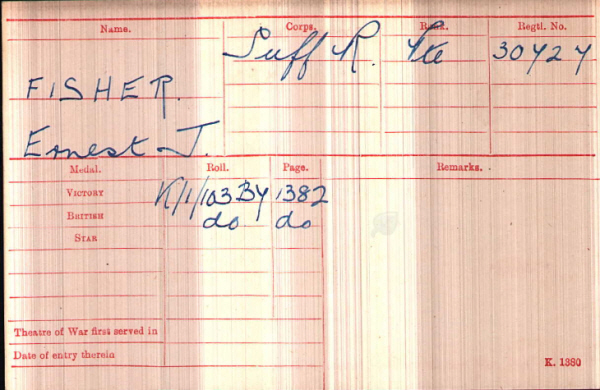 Name. Corps. Rank. Regtl. No.
Suff R. Pte 30727
FISHER.
Ernest J.
Medal. Roll. Page. Remarks.
VICTORY K/1/103 B7 1382
BRITISH do do
STAR
Theatre of War first served in
Date of entry therein
K. 1380